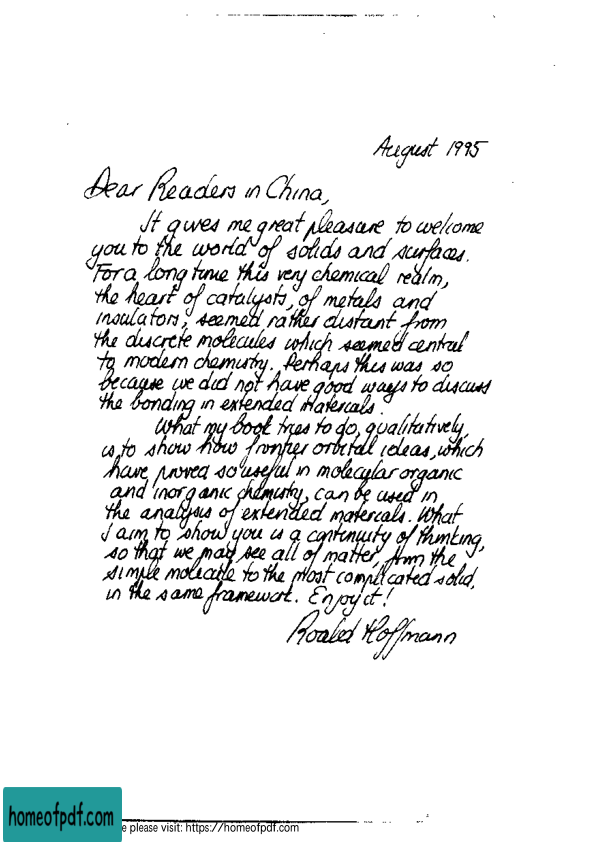 August 1995
Dear Readers in China,
It gives me great pleasure to welcome
you to the world of solids and surfaces.
For a long time this very chemical realm,
the heart of catalysts, of metals and
insulators, seemed rather distant from
the discrete molecules which seemed central
to modern chemistry. Perhaps this was so
because we did not have good ways to discuss
the bonding in extended materials.
What my book tries to do, qualitatively,
is to show how frontier orbital ideas, which
have proved so useful in molecular organic
and inorganic chemistry, can be used in
the analysis of extended materials. What
I aim to show you is a continuity of thinking,
so that we may see all of matter, from the
simple molecule to the most complicated solid,
in the same framework. Enjoy it!
Roald Hoffmann
homeofpdf.com
e please visit: https://homeofpdf.com